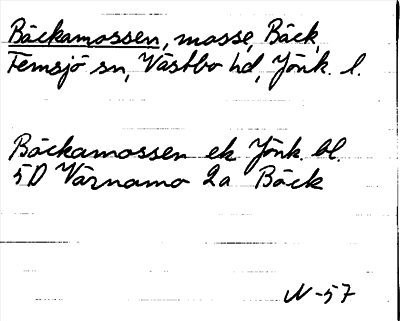 Bäckamossen, mosse, Bäck,
Femsjö sn, Västbo hd, Jönk. l.
Bäckamossen ek Jönk. bl.
5D Värnamo 2a Bäck
N-57